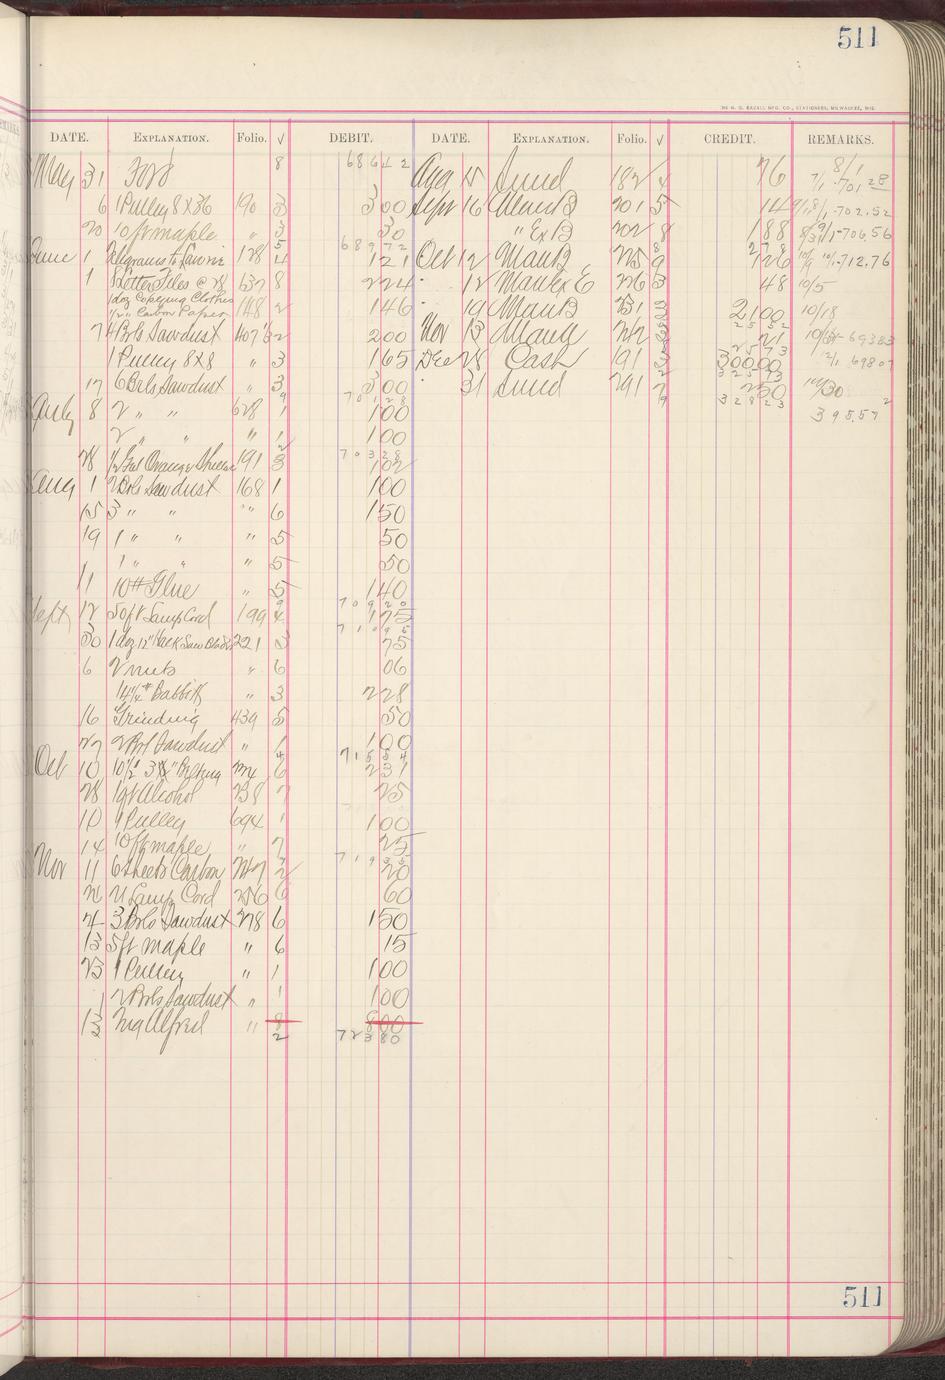 511
DATE. EXPLANATION. Folio. √ DEBIT. DATE. EXPLANATION. Folio. √ CREDIT. REMARKS.
May 31 Ford 8 686 42
6 1 Pulley 8 x 36 190 3 3 00
20 10 ft maple " 3 30
689 72
June 1 Telegrams to 128 4 1 21
1 8 Letter Files @ 28 137 8 2 24
1 doz Copying Clothes
1/2 " Carbon Paper 148 2 1 46
7 4 Brls Sawdust 407 2 2 00
1 Pulley 8 x 8 " 3 1 65
17 6 Brls Sawdust " 3 3 00
701 28
July 8 2 " " 628 1 1 00
2 " " " 1 1 00
703 28
28 1/2 Gal Orange 191 3 1 02
Aug 1 2 Brls Sawdust 168 1 1 00
15 3 " " " 6 1 50
19 1 " " " 5 50
1 " " " 5 50
11 10 # Glue " 5 1 40
709 20
Sept 12 50 ft Lamp Cord 199 4 1 75
710 95
30 1 doz 12" Hack Saw Blades 221 3 75
6 2 nuts " 6 06
14 1/4 # Babbitt " 3 2 28
16 Grinding 439 5 50
27 2 Brl Sawdust " 1 1 00
715 54
Oct 10 10 1/2 Belting 6 2 31
28 1 qt Alcohol 238 7 25
10 1 Pulley 694 1 1 00
14 10 ft maple " 7 25
719 35
Nov 11 6 Sheets Carbon 247 2 20
21 Lamp Cord 256 6 60
4 3 Brls Sawdust 278 6 1 50
13 5 ft maple " 6 15
23 1 Pulley " 1 1 00
1 2 Brls Sawdust " 1 1 00
13 Alfred " 8 8 00
2 723 80
Aug 15 Sund 182 4 76 8/1 7/1 - 701.28
Sept 16 Manf B 201 5 14 9/1 - 702.52
" Ex B 202 8 1 88 - 706.56
2 78
Oct 12 Manf B 225 9 1 26 10/1 - 712.76
" 12 Manf Ex E 226 3 48 10/5
" 19 Manf B 231 3 21 00 10/18
25 52
Nov 13 Manf 21 693 83
25 73
Dec 28 Cash 191 3 300 00 2/1 698 07
325 73
" 31 Sund 291 7 2 50
328 23
395.57
511